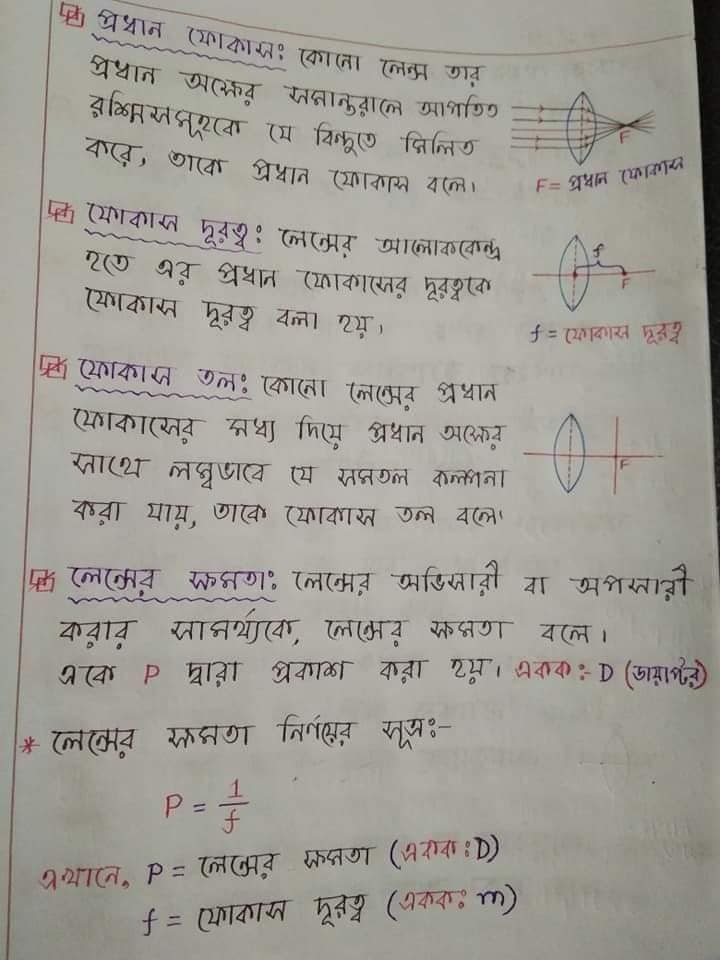 প্রধান ফোকাস: কোনো লেন্স তার
প্রধান অক্ষের সমান্তরালে আপতিত
রশ্মিসমূহকে যে বিন্দুতে মিলিত
করে, তাকে প্রধান ফোকাস বলে।
F
F = প্রধান ফোকাস
ফোকাস দূরত্ব: লেন্সের আলোককেন্দ্র
হতে এর প্রধান ফোকাসের দূরত্বকে
ফোকাস দূরত্ব বলা হয়।
f
F
f = ফোকাস দূরত্ব
ফোকাস তল: কোনো লেন্সের প্রধান
ফোকাসের মধ্য দিয়ে প্রধান অক্ষের
সাথে লম্বভাবে যে সমতল কল্পনা
করা যায়, তাকে ফোকাস তল বলে।
F
লেন্সের ক্ষমতা: লেন্সের অভিসারী বা অপসারী
করার সামর্থ্যকে, লেন্সের ক্ষমতা বলে।
একে P দ্বারা প্রকাশ করা হয়। একক:- D (ডায়াপ্টর)
* লেন্সের ক্ষমতা নির্ণয়ের সূত্র:-
P = 1/f
এখানে, P = লেন্সের ক্ষমতা (একক: D)
f = ফোকাস দূরত্ব (একক: m)